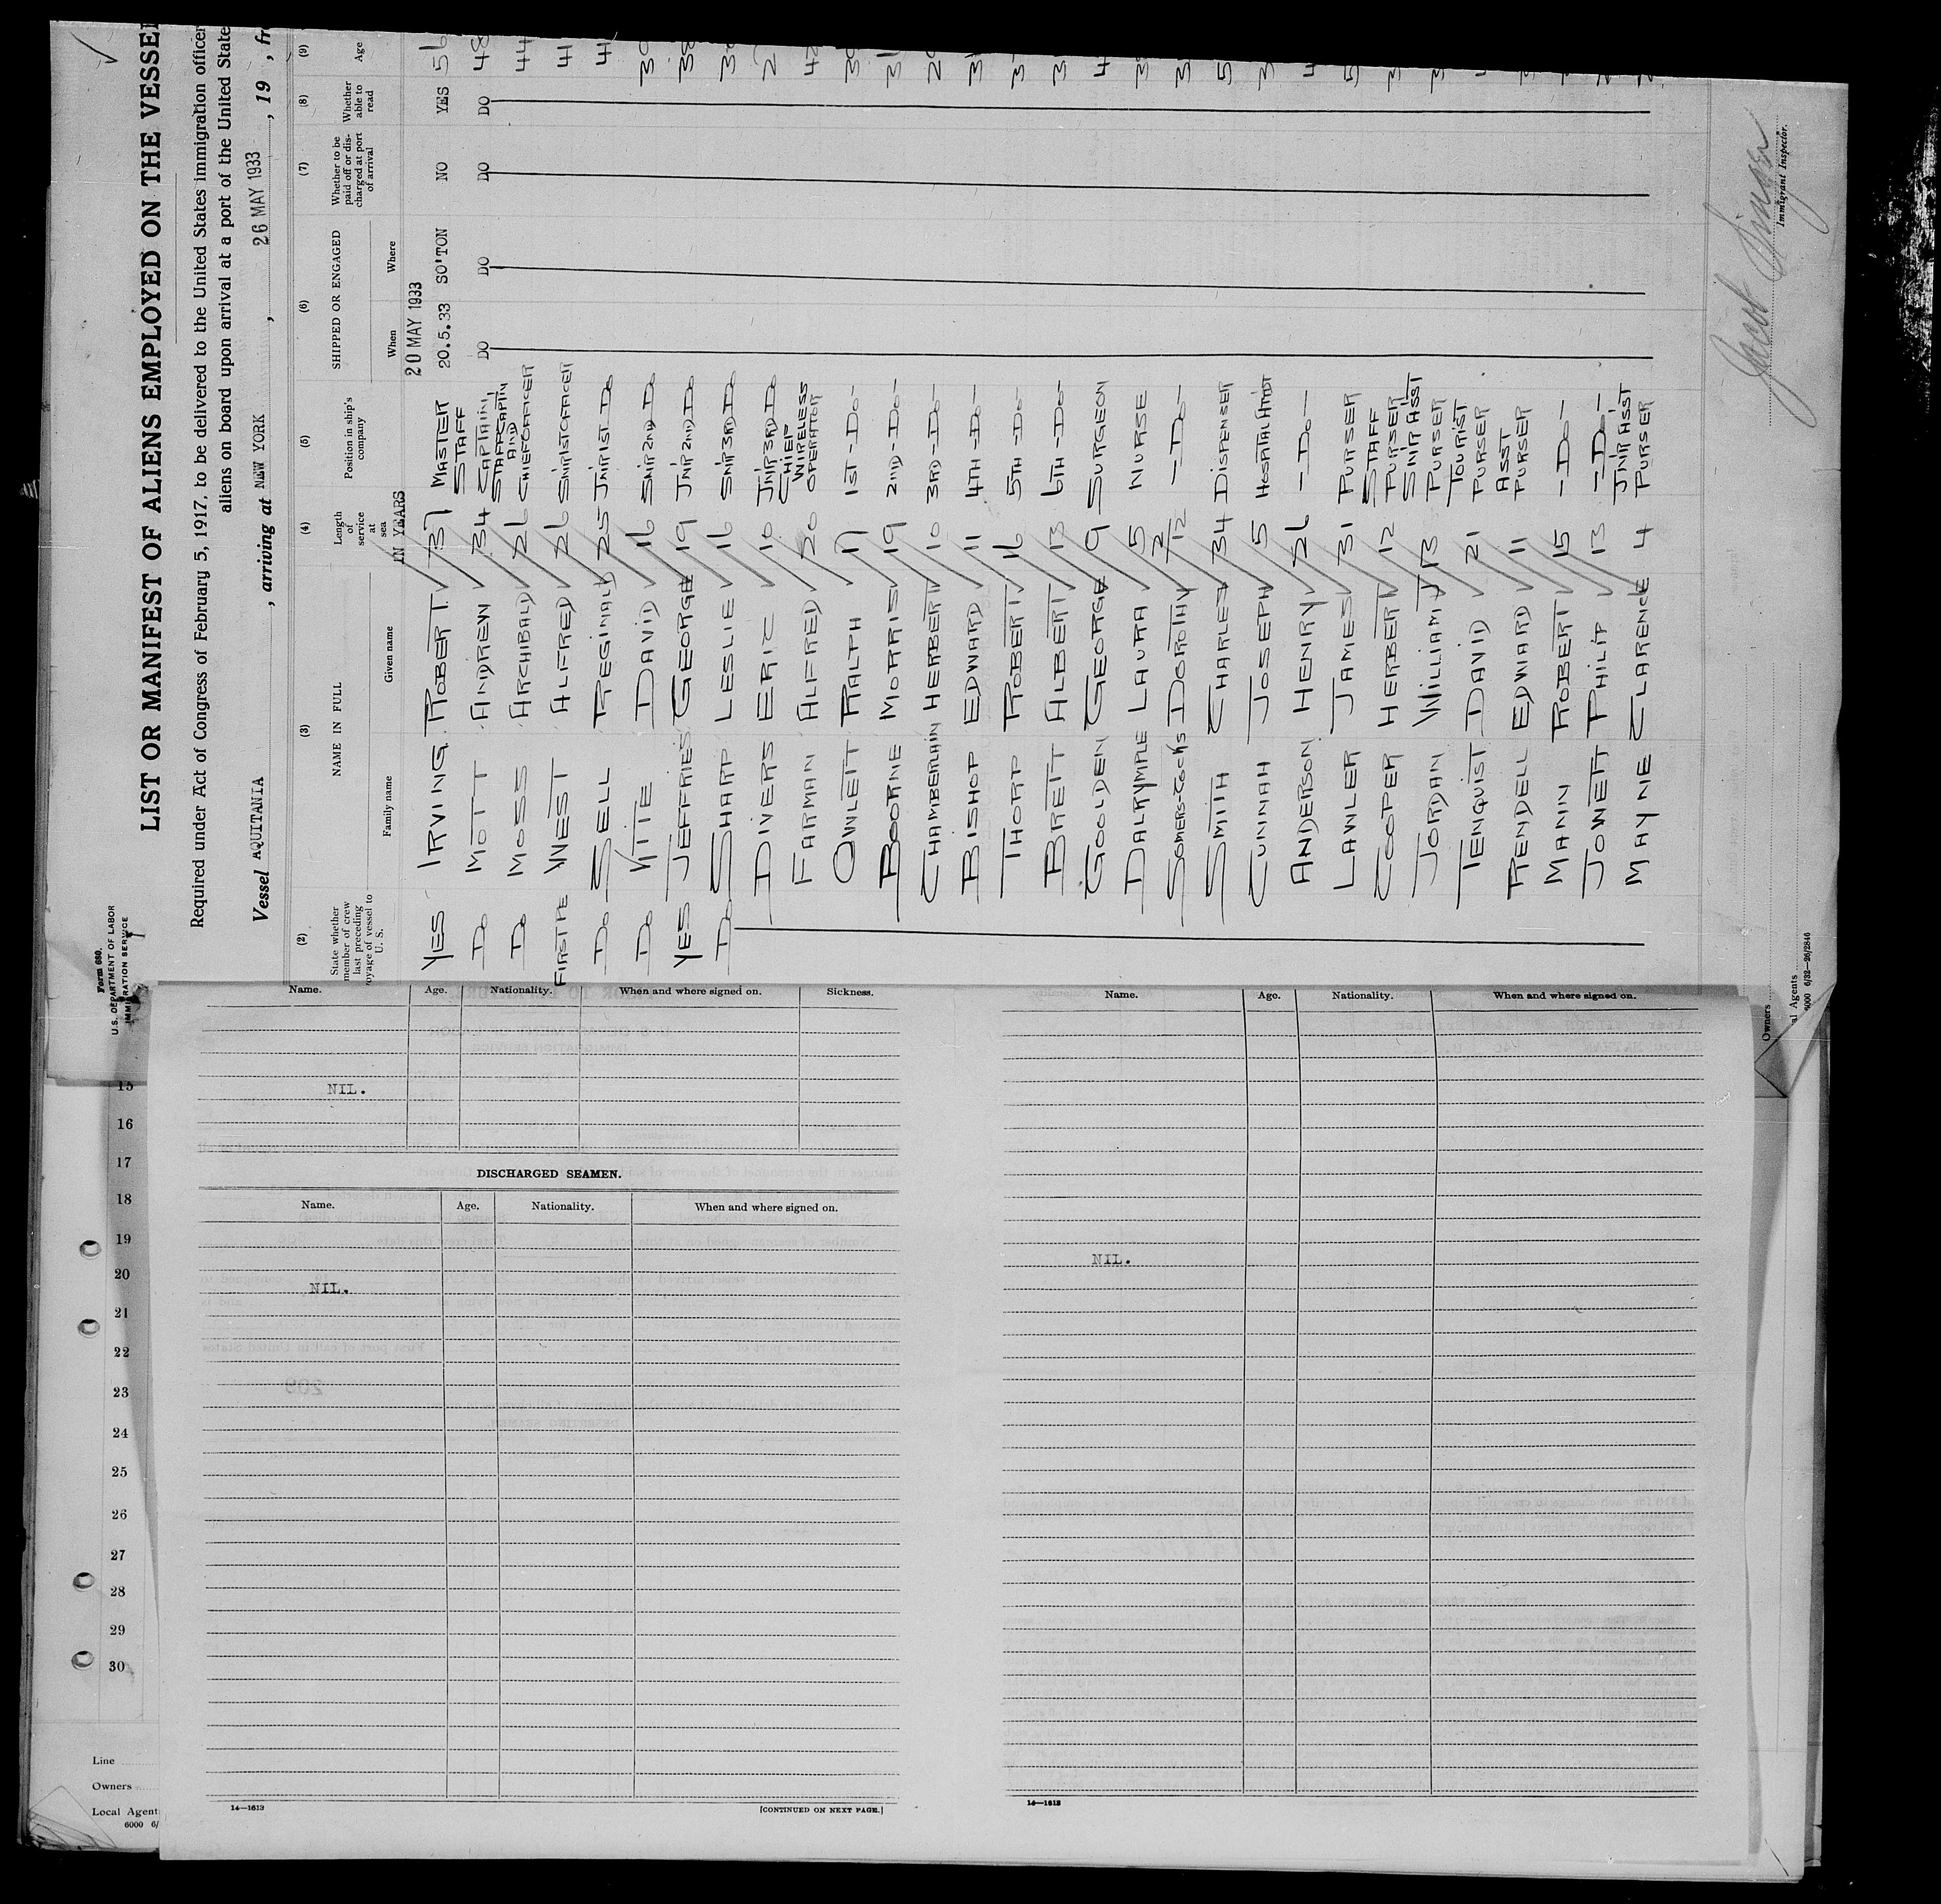 LIST OR MANIFEST OF ALIENS EMPLOYED ON THE VESSEL
Required under Act of Congress of February 5, 1917, to be delivered to the United States immigration officer
aliens on board upon arrival at a port of the United State
Vessel AQUITANIA , arriving at NEW YORK , 26 MAY 1933 , 19 , fr
Form 680.
U.S. DEPARTMENT OF LABOR
IMMIGRATION SERVICE
(2) (3) (4) (5) (6) (7) (8) (9)
State whether member of crew last preceding voyage of vessel to U. S.
NAME IN FULL
Family name Given name
Length of service at sea
IN YEARS
Position in ship's company
SHIPPED OR ENGAGED
When Where
Whether to be paid off or discharged at port of arrival
Whether able to read
Age
20 MAY 1933
YES IRVING ROBERT. 37 MASTER 20.5.33 SO'TON NO YES 56
Do MOTT ANDREW 34 STAFF CAPTAIN DO DO DO DO 48
Do MOSS ARCHIBALD 26 STAFF CAPTAIN AND CHIEF OFFICER 44
FIRST TE WEST ALFRED 26 SNIR 1ST OFFICER 41
Do SELL REGINALD 25 JNIR 1ST Do 41
Do VITIE DAVID 16 SNIR 2ND Do
YES JEFFRIES GEORGE 19 JNIR 2ND Do 38
Do SHARP LESLIE 16 SNIR 3RD Do
DIVERS ERIC 10 JNIR 3RD Do
FARMAN ALFRED 20 CHIEF WIRELESS OPERATOR
OWLETT RALPH 17 1ST -Do-
BOORNE MORRIS 19 2ND -Do-
CHAMBERLAIN HERBERT 10 3RD -Do-
BISHOP EDWARD 11 4TH -Do-
THORP ROBERT 16 5TH -Do-
BRETT ALBERT 13 6TH -Do-
GOOLDEN GEORGE 9 SURGEON
DALRYMPLE LAURA 5 NURSE
SOMERS-COCKS DOROTHY 2/12 -Do-
SMITH CHARLES 34 DISPENSER
CUNNAH JOSEPH 5 HOSPITAL ATNDT
ANDERSON HENRY 26 -Do-
LAWLER JAMES 31 PURSER
COOPER HERBERT 12 STAFF PURSER
JORDAN WILLIAM J 13 SNIR ASST PURSER
TENQUIST DAVID 21 TOURIST PURSER
RENDELL EDWARD 11 ASST PURSER
MANN ROBERT 15 -Do-
JOWETT PHILIP 13 -Do-
MAYNE CLARENCE 4 JNIR ASST PURSER
Jacob Singer
Immigrant Inspector.
Owners
al Agents
6000 6/32-26/2846
Name. Age. Nationality. When and where signed on. Sickness.
NIL.
DISCHARGED SEAMEN.
Name. Age. Nationality. When and where signed on.
NIL.
14—1613 [CONTINUED ON NEXT PAGE.]
Name. Age. Nationality. When and where signed on.
NIL.
14—1613
15
16
17
18
19
20
21
22
23
24
25
26
27
28
29
30
Line
Owners
Local Agent
6000 6/